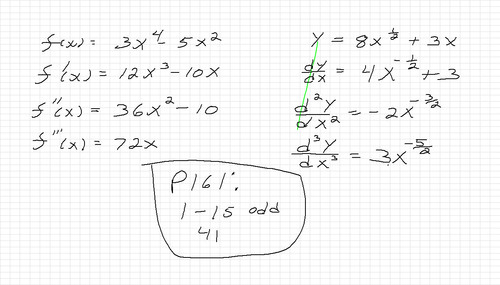 f(x) = 3x⁴ - 5x²
f'(x) = 12x³ - 10x
f''(x) = 36x² - 10
f'''(x) = 72x
y = 8x^½ + 3x
dy/dx = 4x^-½ + 3
d²y/dx² = -2x^-3/2
d³y/dx³ = 3x^-5/2
P161:
1 - 15 odd
41